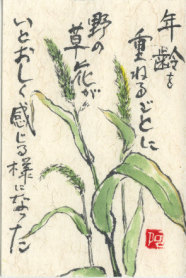 年齢を
重ねるごとに
野の
草花が
いとおしく感じる様になった